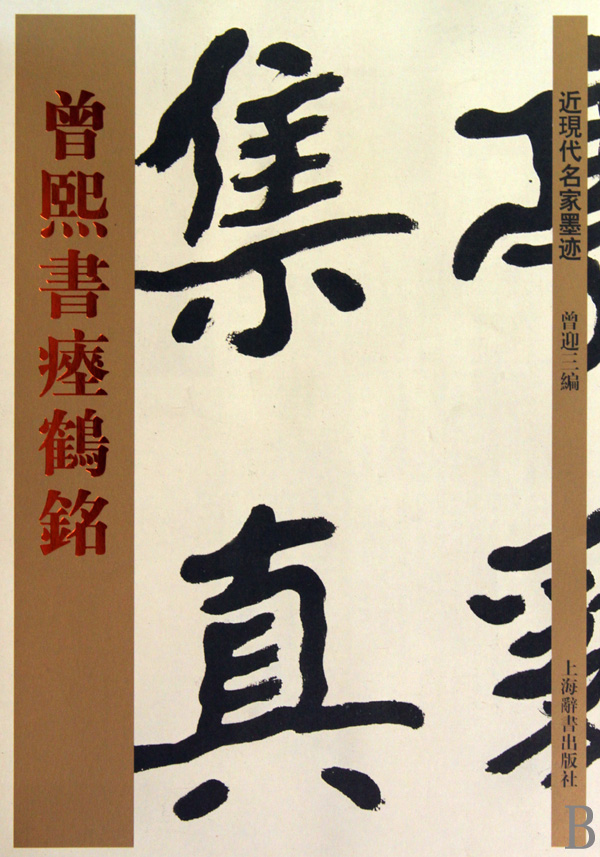 近現代名家墨迹
曾迎三編
上海辭書出版社
集真
曾熙書瘞鶴銘
B